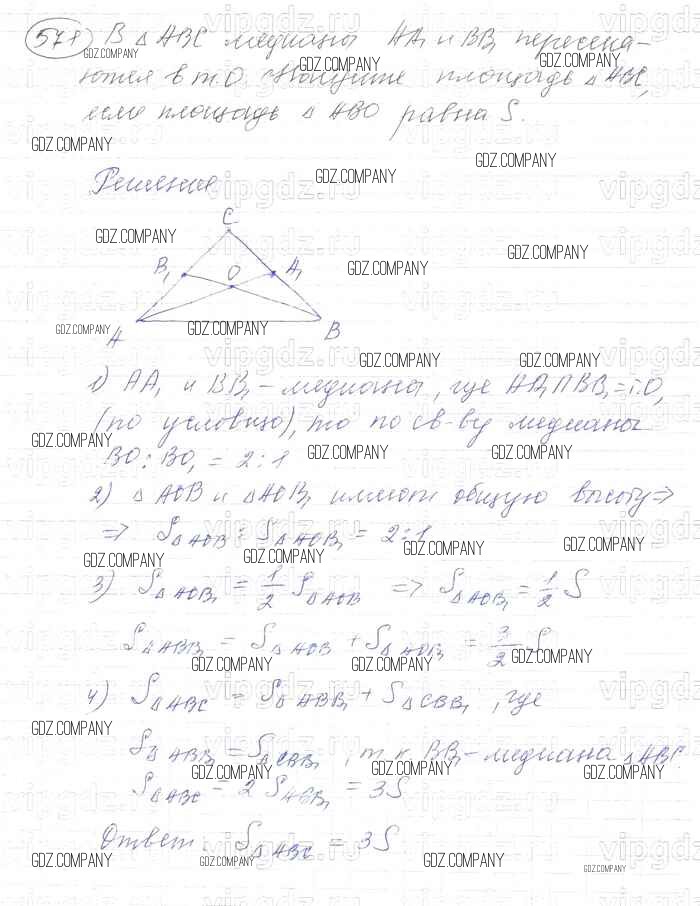 571 В △ABC медианы AA₁ и BB₁ пересека-
ются в т.O. Найдите площадь △ABC,
если площадь △ABO равна S.
Решение
C
B₁ O A₁
A B
1) AA₁ и BB₁ - медианы, где AA₁∩BB₁ = т.O,
(по условию), то по св-ву медианы
BO : BO₁ = 2 : 1
2) △AOB и △AOB₁ имеют общую высоту ⇒
⇒ S△AOB : S△AOB₁ = 2 : 1
3) S△AOB₁ = 1/2 S△AOB ⇒ S△AOB₁ = 1/2 S
S△ABB₁ = S△AOB + S△AOB₁ = 3/2 S
4) S△ABC = S△ABB₁ + S△CBB₁, где
S△ABB₁ = S△CBB₁, т.к. BB₁ - медиана △ABC.
S△ABC = 2 S△ABB₁ = 3S
Ответ: S△ABC = 3S
GDZ.COMPANY
vipgdz.ru